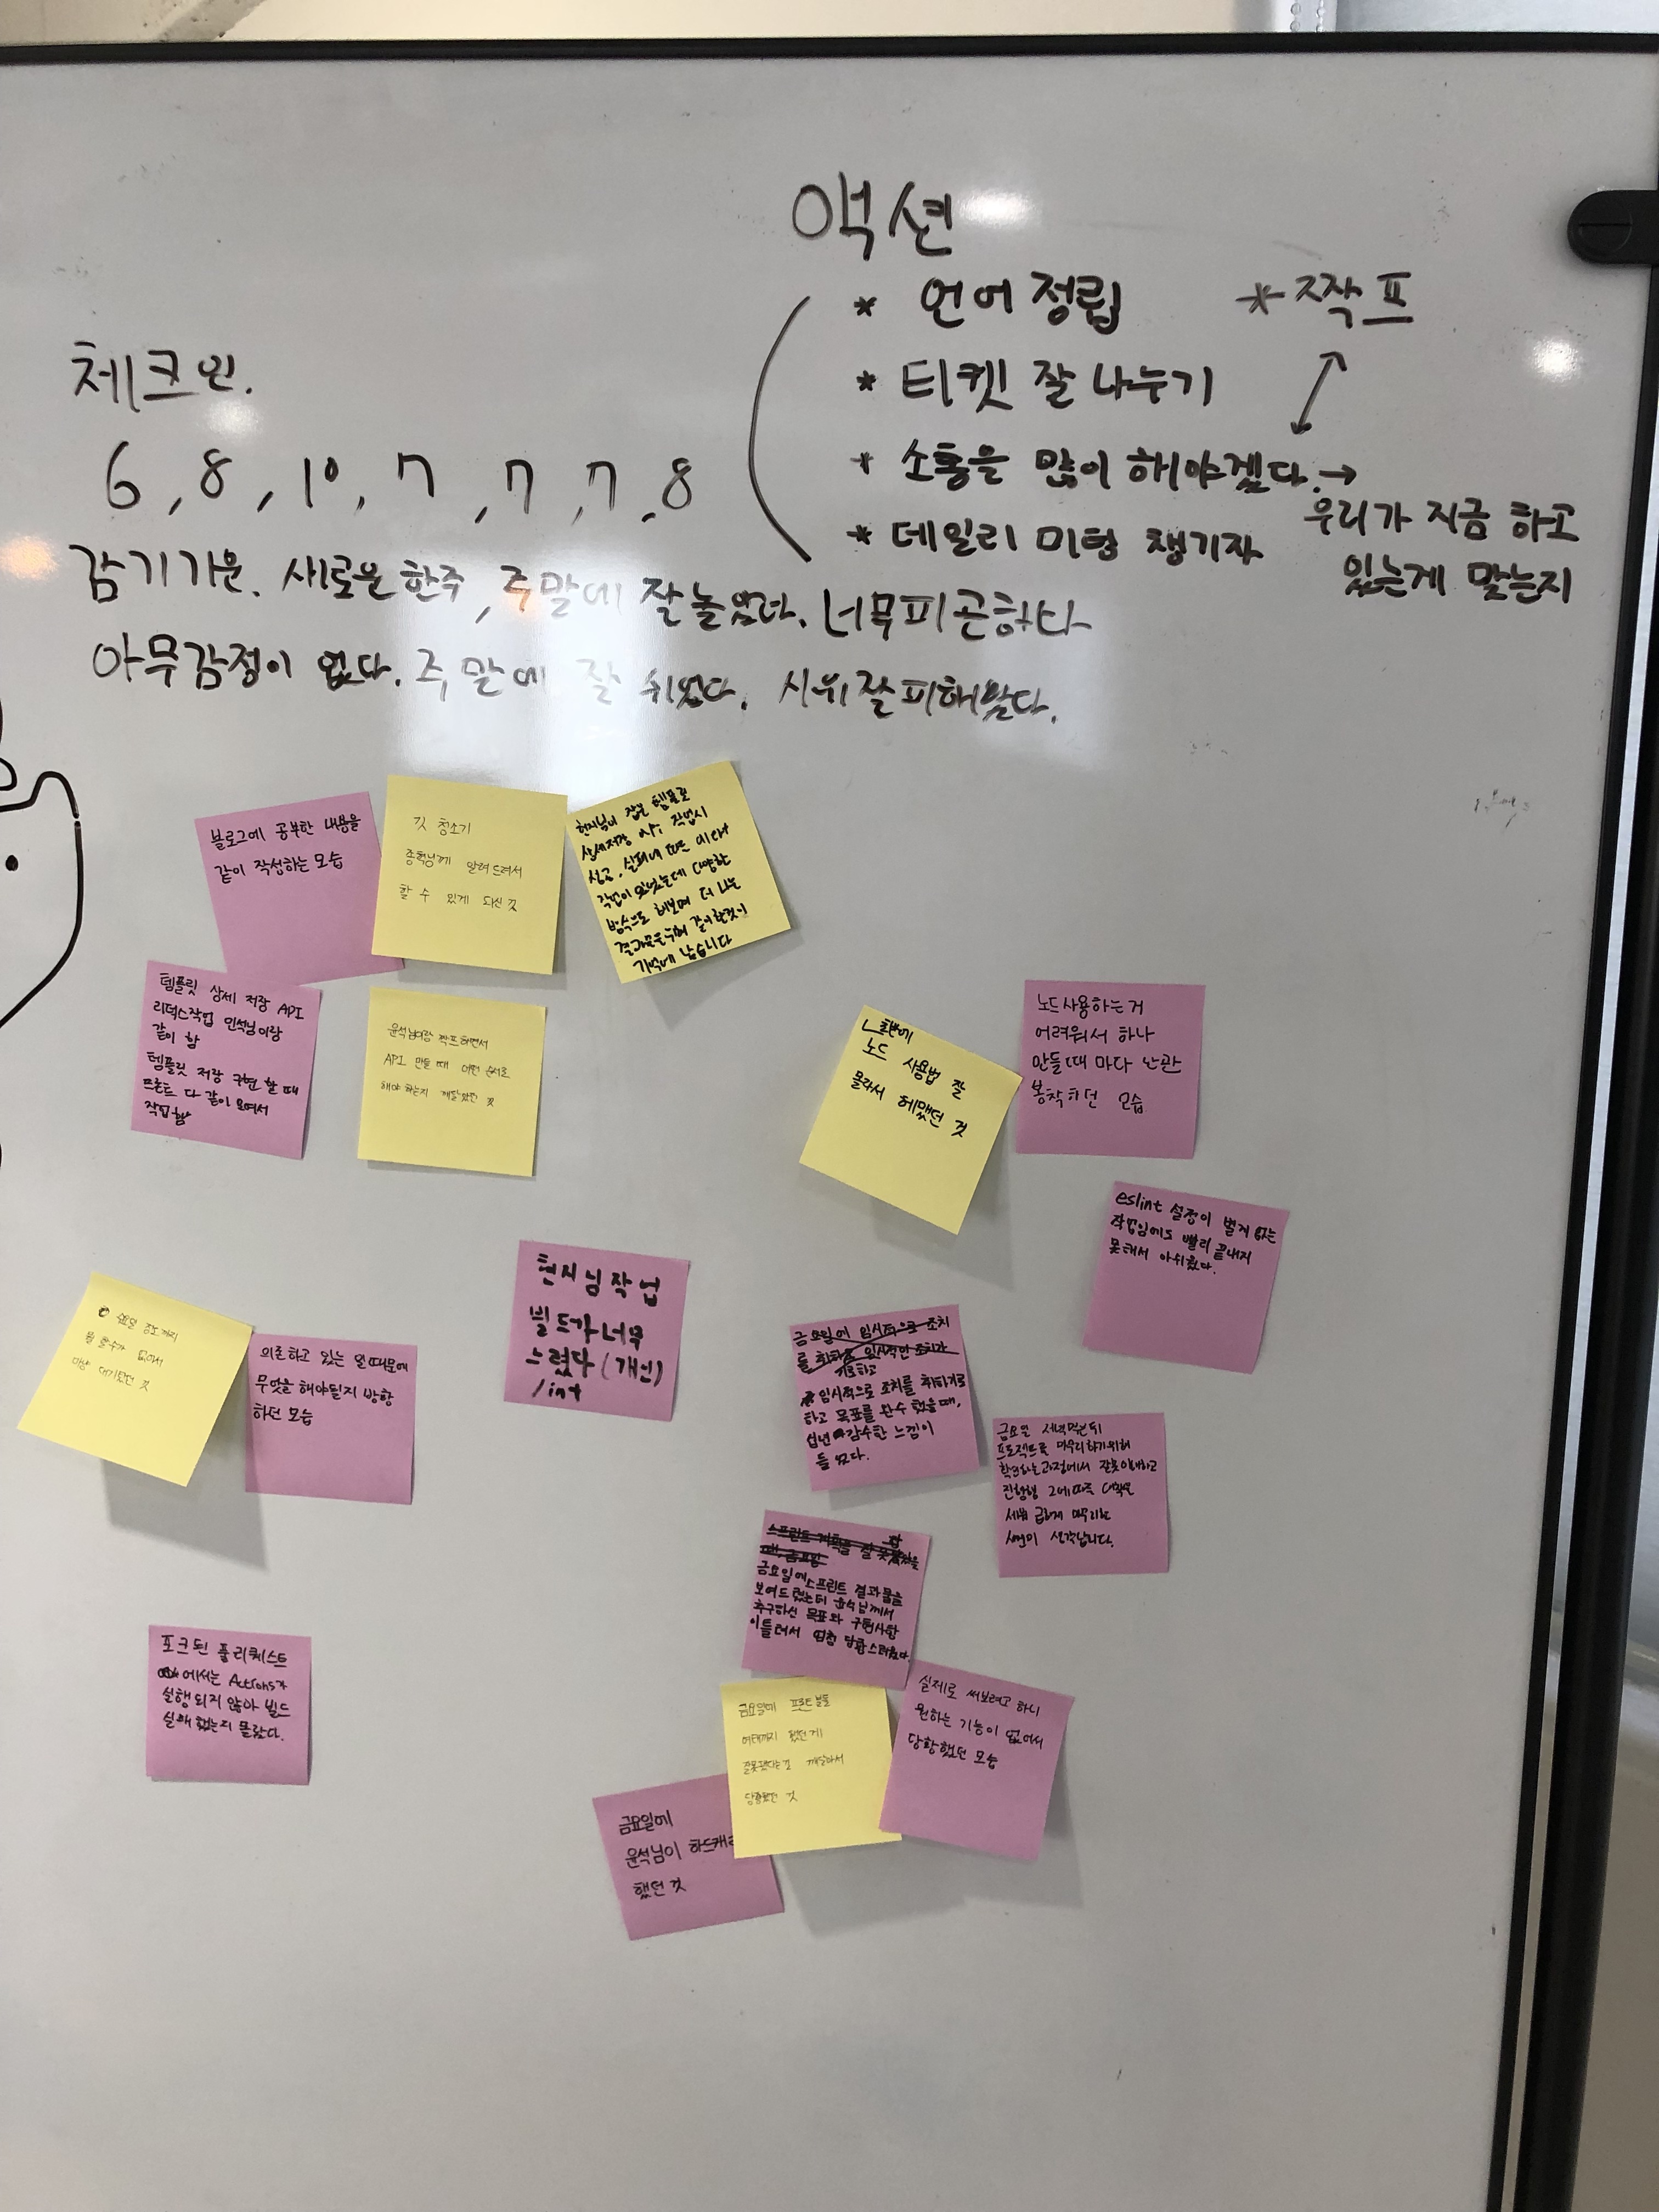 액션
* 언어 정립
* 짝프
* 티켓 잘 나누기
* 소통을 많이 해야겠다. →
우리가 지금 하고
있는게 맞는지
* 데일리 미팅 챙기자
체크인.
6, 8, 10, 7, 7, 7, 8
감기기운. 새로운 한주, 주말에 잘 놀았다. 너무피곤하다
아무감정이 없다. 주말에 잘 쉬었다. 시위잘피해왔다.
블로그에 공부한 내용을
같이 작성하는 모습
깃 청소기
알려 드려서
할 수 있게 되신 것
현지님이 잡은 템플릿
상세저장 작업시
성공, 실패에 따른
작업이 있었는데 다양한
방식으로 해보며 더 나은
기억에 남습니다
템플릿 상세 저장 API
리덕스작업 민석님이랑
같이 함
템플릿 저장 구현 할 때
프론트 다 같이 모여서
작업함
윤석님이랑 짝프하면서
API 만들 때 어떤 순서로
해야 하는지 깨달았던 것
노드 사용법 잘
몰라서 헤맸던 것
노드사용하는거
어려워서 하나
만들때 마다 난관
봉착하던 모습
eslint 설정이 별거 없는
작업임에도 빨리 끝내지
못해서 아쉬웠다.
현지님작업
빌드가너무
느렸다 (개인)
/int
뭘 할수가 없어서
마냥 대기했던 것
의존하고 있는 일 때문에
무엇을 해야될지 방황
하던 모습
금요일에 임시적으로 조치
를 취하고 임시적인 조치가
기로하고
임시적으로 조치를 취하기로
하고 목표를 완수 했을때,
십년 감수한 느낌이
들었다.
금요일 저녁먹은뒤
프로젝트를 마무리하기위해
확인하는과정에서 잘못이해하고
진행행 그에따른 대책을
세워 급하게 마무리한
생각납니다.
스프린트 계획을 잘 못
때, 금요일
금요일에 스프린트 결과물을
보여드렸는데 윤석님께서
추구하신 목표와 구현사항
이 틀려서 엄청 당황스러웠다.
포크된 풀리퀘스트
에서는 Actions가
실행되지 않아 빌드
실패 했는지 몰랐다.
금요일에 프론트분들
여태까지 했던게
잘못됐다는걸 깨달아서
당황했던 것
실제로 써보려고 하니
원하는 기능이 없어서
당황했던 모습
금요일에
윤석님이 하드캐리
했던 것